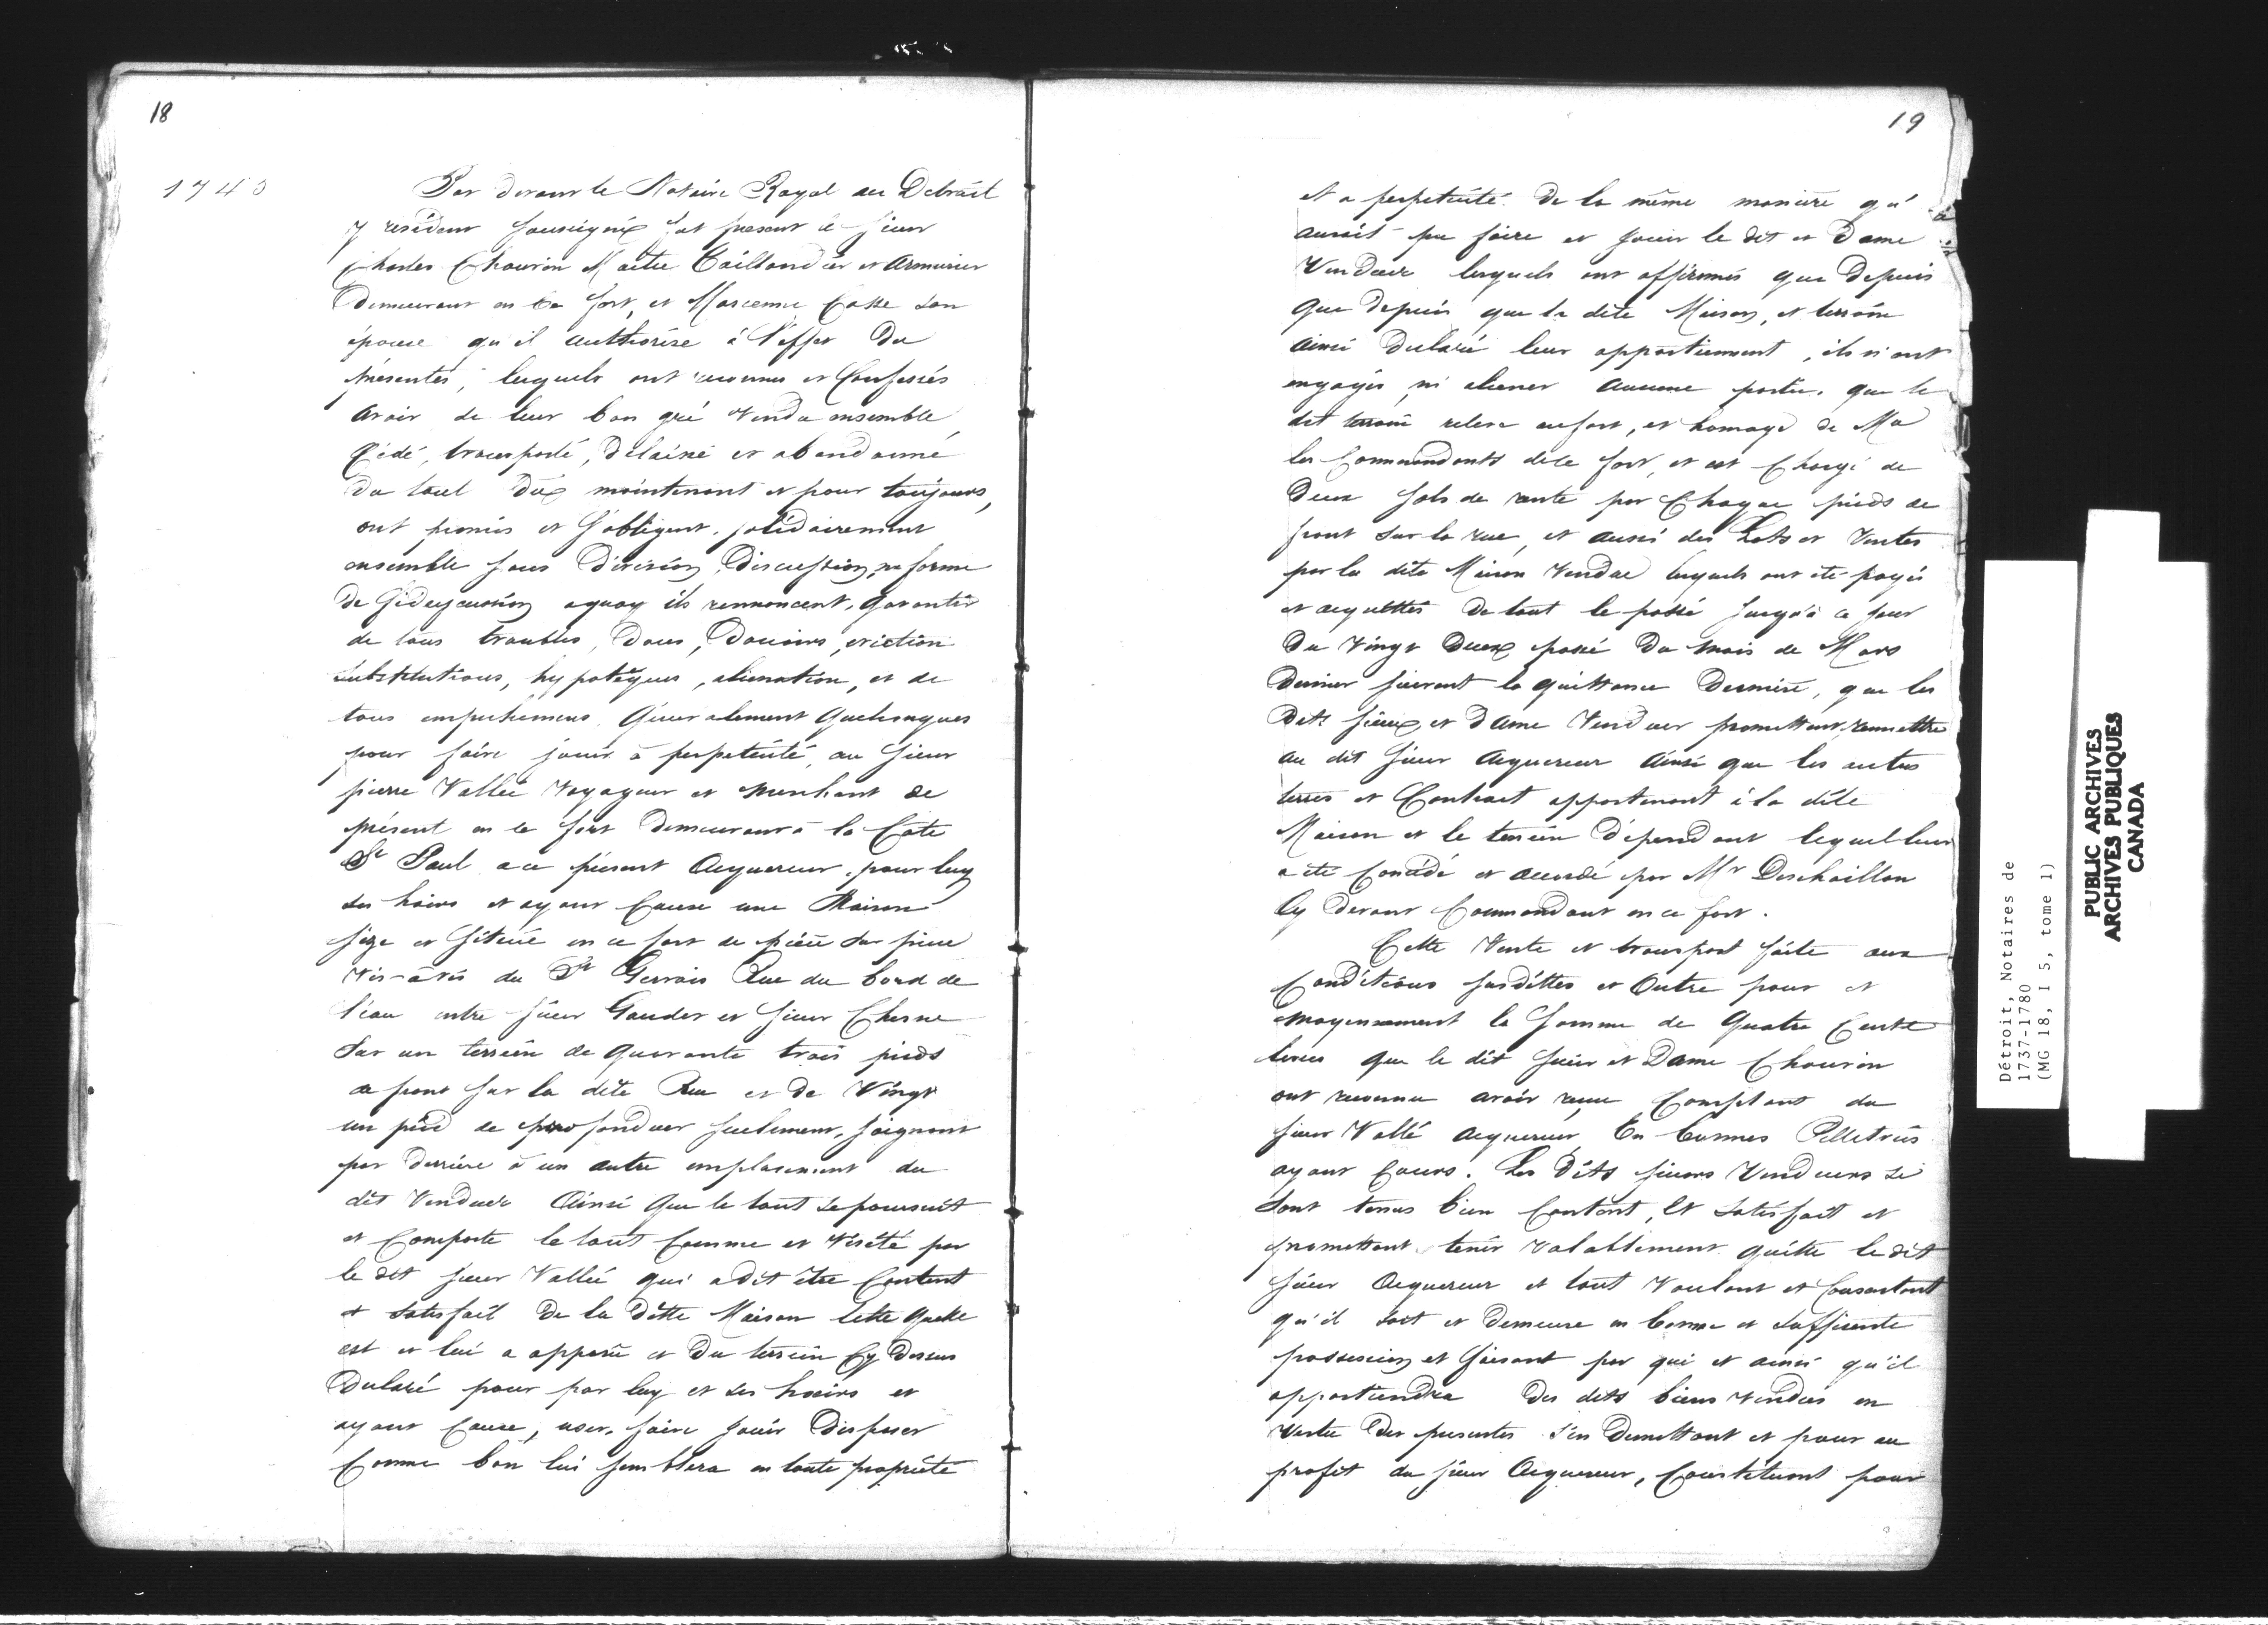 18
1743
Par devant le Notaire Royal au Detroit
y résident soussigné fut present le sieur
Charles Chauvin Maitre Taillandier et armurier
demeurant en ce fort, et Marianne Casse son
épouse qu'il authorise à l'effet des
présentes, lesquels ont reconnus et Confessés
avoir de leur bon gré vendu ensemble,
Cédé, transporté, délaissé et abandonné
du tout dès maintenant et pour toujours,
ont promis et s'obligent, solidairement
ensemble sans division, discussion, ne forme
de aquoy ils rennoncent, garentir
de tous troubles, dons, douaires, eviction
substitutions, hypotèques, alienation, et de
tous empechemens Généralement quelconques
pour faire jouir à perpetuité, au sieur
pierre Vallée Voyageur et marchant de
présent en ce fort demeurant à la Côte
St Paul a ce présent acquereur, pour luy
ses hoirs et ayant Cause une Maison
size et située en ce fort de pièce sur pièce
vis-à-vis du Sr Gervais Rue du bord de
l'eau entre sieur Gaudet et sieur Chesne
sur un terrein de quarante trois pieds
de front sur la dite Rue et de Vingt
un pied de profondeur seulement, joignant
par derrière à un autre emplacement du
dit Vendeur Ainsi que le tout se poursuit
et Comporte le tout Comme et visité par
le dit sieur Vallée qui a dit être Content
et satisfait de la ditte Maison telle quelle
est et lui a apparu et du terrein Cy dessus
declaré pour par luy et ses hoirs et
ayant Cause, user, faire jouir disposer
Comme bon lui semblera en toute propriété
19
et a perpetuité de la même manière qu'
auroit pu faire et jouir le dit et Dame
Vendeur lesquels ont affirmés que depuis
que depuis que la dite Maison, et terrein
ainsi declaré leur appartiennent, ils n'ont
engagés, ni aliener aucune partie, que le
dit terrein releve au fort, et homage de
les Commandants de ce fort, et est Chargé de
deux sols de rente par Chaque pieds de
front sur la rue, et aussi des Lots et Ventes
par la dite Maison Vendue lesquels ont été payés
et acquittés de tout le passé jusqu'à ce jour
du Vingt deux passé du mois de Mars
dernier suivant la quittance dernière, que les
dits sieur et dame Vendeur promettent remettre
au dit sieur acquereur ainsi que les autres
terres et Contract appartenant à la dite
Maison et le terrein dépendant lequel leur
a été Concédé et accordé par Mr Deschaillon
Cy devant Commandant en ce fort.
Cette Vente et transport faite aux
Conditions susdittes et Outre pour et
moyennement la somme de Quatre Cents
livres que le dit sieur et Dame Chauvin
ont reconnu avoir reçu Comptant du
sieur Vallé acquereur, En bonnes Pelletries
ayant Cours. Les dits sieurs Vendeurs se
sont tenus bien Content, Et satisfait et
promettent tenir Valablement quitte le dit
sieur Acquereur et tout Voulant et Consentant
qu'il soit et demeure en bonne et suffisante
possession et saisant par qui et ainsi qu'il
appartiendra des dits biens vendus en
Vertu des presentes s'en demettant et pour au
profit du sieur Acquereur, Constituant pour
Détroit, Notaires de
1737-1780
(MG 18, I 5, tome 1)
PUBLIC ARCHIVES
ARCHIVES PUBLIQUES
CANADA